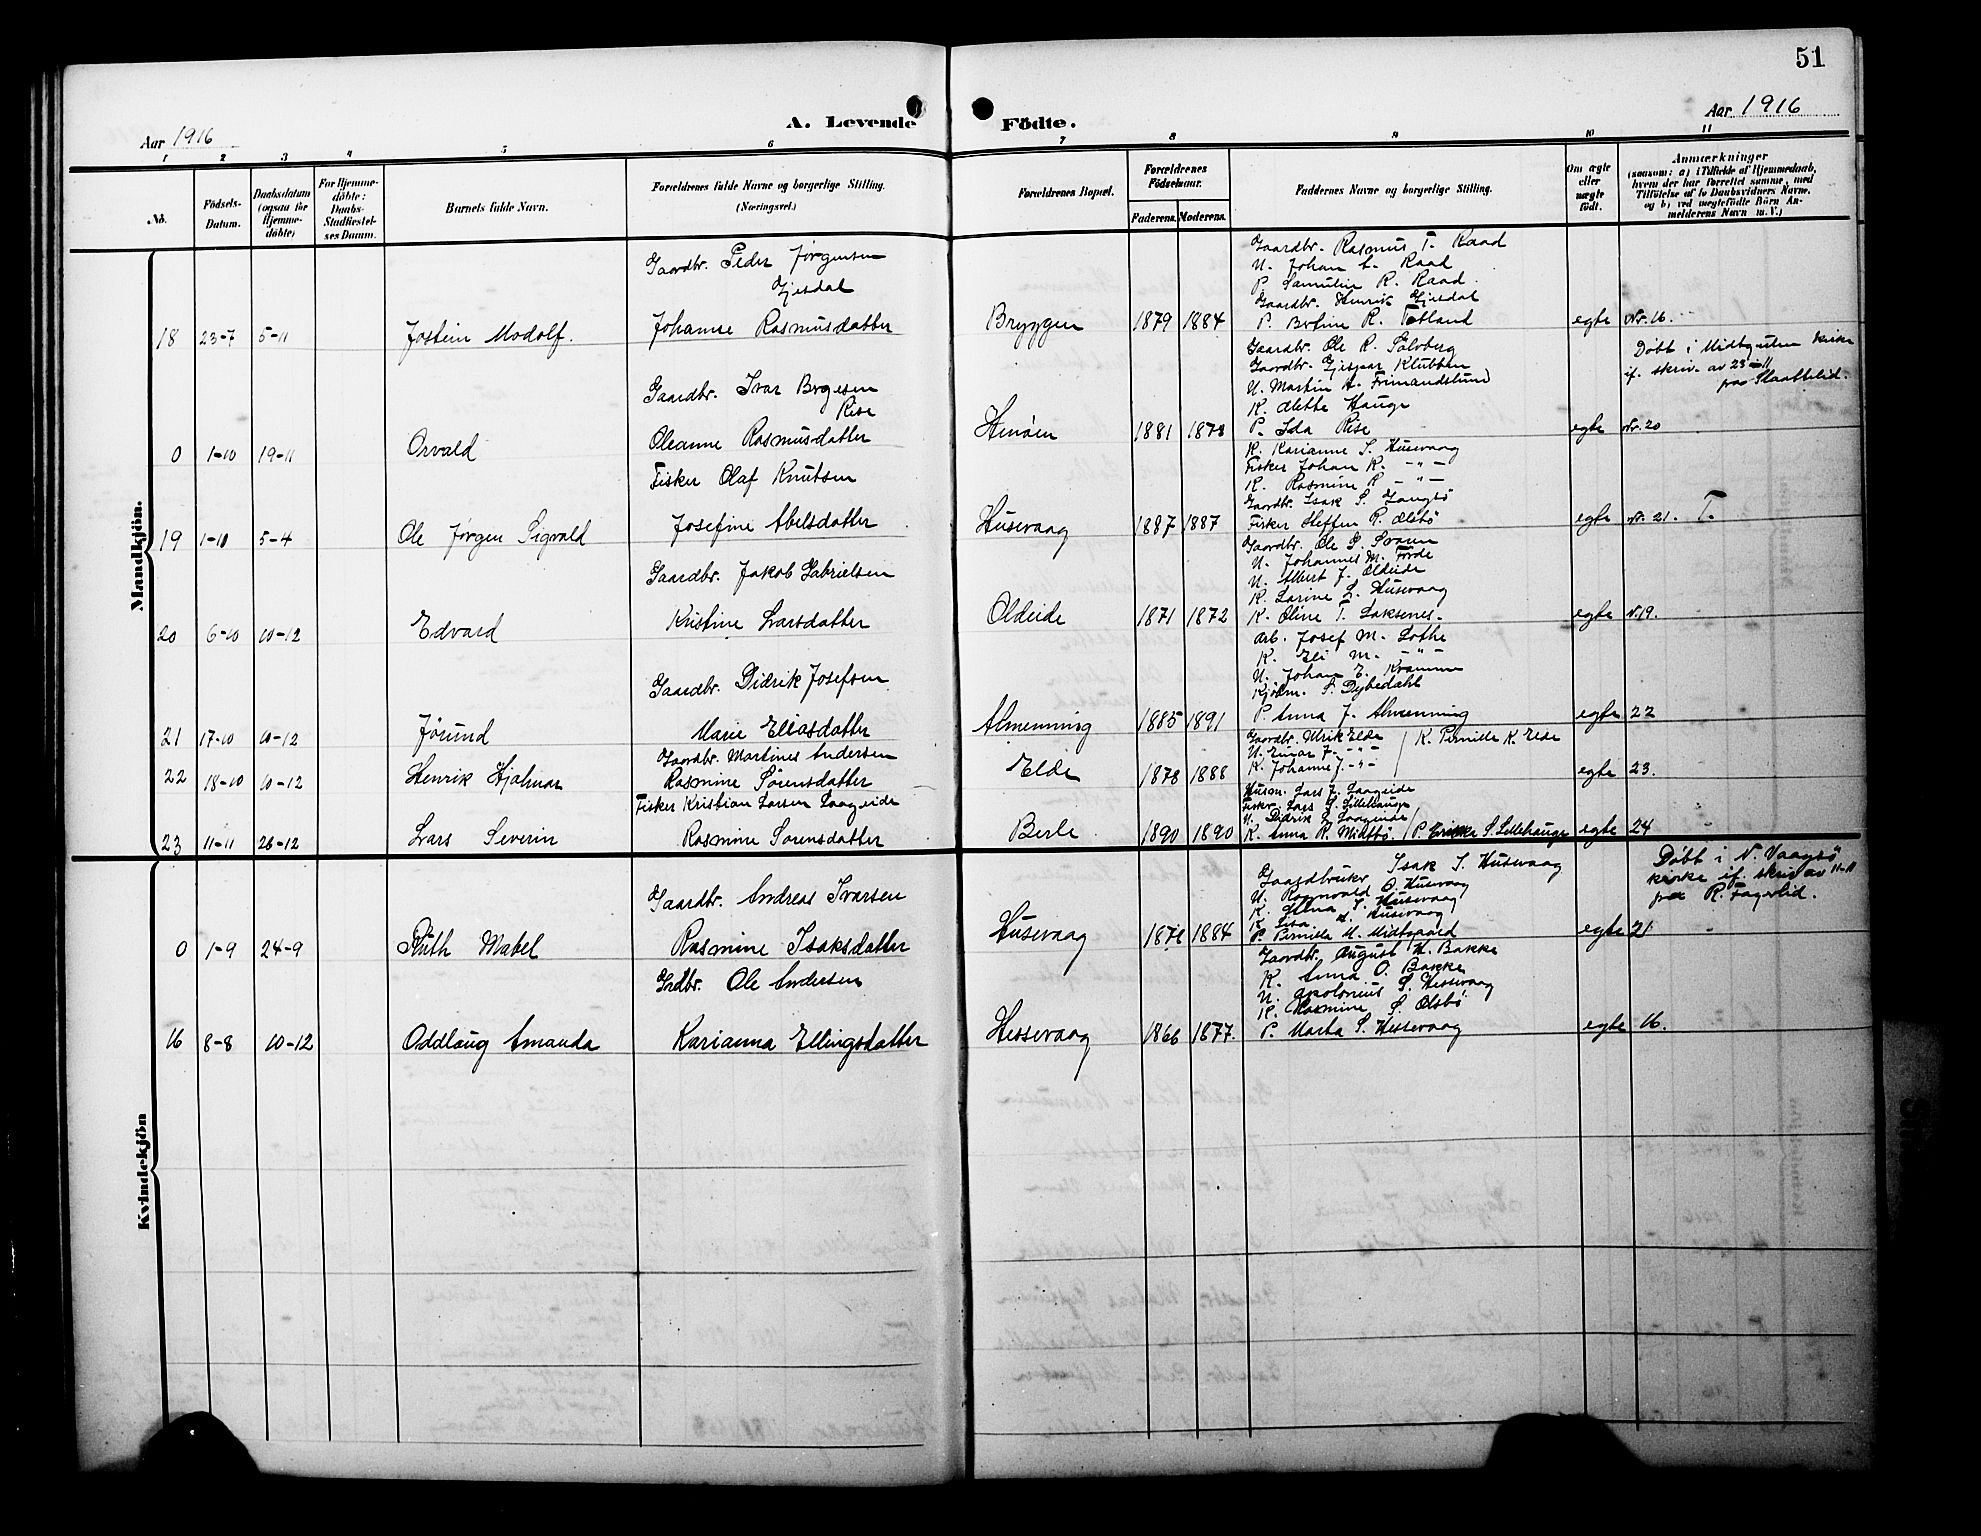 51
Aar 1916
A. Levende Födte.
Aar 1916
1 2 3 4 5 6 7 8 9 10 11
No.
Födsels-Datum.
Daabsdatum (ogsaa för Hjemme-döbte)
For Hjemme-döbte: Daabs-Stadfæstel-ses Datum.
Barnets fulde Navn.
Forældrenes fulde Navne og borgerlige Stilling.
(Næringsvei.)
Forældrenes Bopæl.
Forældrenes Födselsaar.
Faderens. Moderens.
Faddernes Navne og borgerlige Stilling.
Om ægte eller uægte födt.
Anmærkninger
(saasom: a) i Tilfælde af Hjemmedaab, hvem der har forrettet samme, med Tilföielse af to Daabsvidners Navne, og b) ved uegtefödte Börn An-melderens Navn m. V.)
Mandkjön.
18 23-7 5-11 Jostein Modolf.
Gaardbr. Peder Jørgensen
Gjesdal
Johanne Rasmusdatter
Bryggen 1879 1884
Gaardbr. Rasmus T. Raad
U. Johan Raad
P. Samuline R. Raad.
Gaardbr. Henrik Gjesdal
P. R. Totland
egte Nr. 16.
0 1-10 19-11 Orvald
Gaardbr. Ivar
Rise
Oleanne Rasmusdatter
Henøen 1881 1878
Gaardbr. Ole R. Sølvberg
Gaardbr. Klubben
U. Martin A. Frimandslund
K. Alette Hauge
P. Ida Rise
egte Nr. 20
Døbt i Midtgulen kirke
if. skriv. av 23-11
fra Slaattelid.
19 1-10 5-4 Ole Jørgen Sigvald
Fisker Olaf Knutsen
Josefine Abelsdatter
Husevaag 1887 1887
K. Karianne S. Husevaag
Fisker Johan K. -"-
K. Rasmine R -"-
Gaardbr. Isak S. Langsø
Fisker Steffen R. Ølsbø
egte Nr. 21. T.
20 6-10 10-12 Edvard
Gaardbr. Jakob Gabrielsen
Kristine Larsdatter
Oldeide 1871 1872
Gaardbr. Ole P.
U. Johannes M. Førde
U. Albert J. Oldeide
K. Larine L. Husevaag
K. Oline T. Laksenes.
egte N. 19.
21 17-10 10-12 Jørund
Gaardbr. Didrik Josefsen
Marie Eliasdatter
Almenning 1885 1891
Arb. Josef M. Lothe
K. Eli M. -"-
U. Johan E. Kramme
Kjøbm. S. Dybedahl
P. Anna J. Almenning
egte 22
22 18-10 10-12 Henrik Hjalmar
Gaardbr. Martines Andersen
Rasmine Sørensdatter
Elde 1878 1888
Gaardbr. Ulrik Elde
U. Einar J. -"-
K. Johanne J. -"-
K. Pernille K. Elde
egte 23.
23 11-11 26-12 Lars Severin
Fisker Kristian Larsen Laageide
Rasmine Sørensdatter
Berle 1890 1890
Husm. Lars J. Laageide
Fisker Lars S. Sillehauge
U. Didrik L. Laageide
K. Anna R. Midtbø. / P. S. Sillehauge
egte 24
Kvindekjön
0 1-9 24-9 Ruth Mabel
Gaardbr. Andreas Ivarsen
Rasmine Isaksdatter
Husevaag 1884
Gaardbruker Isak S. Husevaag
U. Ragnvald O. Husevaag
K. S. Husevaag
K. Lisa Husevaag
P. Pernilla M. Midtgaard
egte 21
Døbt i N. Vaagsø
kirke if. skriv av 11-11
fra R. Fagerlid.
16 8-8 10-12 Oddlaug Amanda
Grdbr. Ole Andersen
Karianna Ellingsdatter
Hessevaag 1866 1877.
Gaardbr. August H. Bakke
K. Anna O. Bakke
U. Apolonius S. Hessevaag
K. Rasmine S. Ølsbø
P. Marta S. Hessevaag
egte 16.